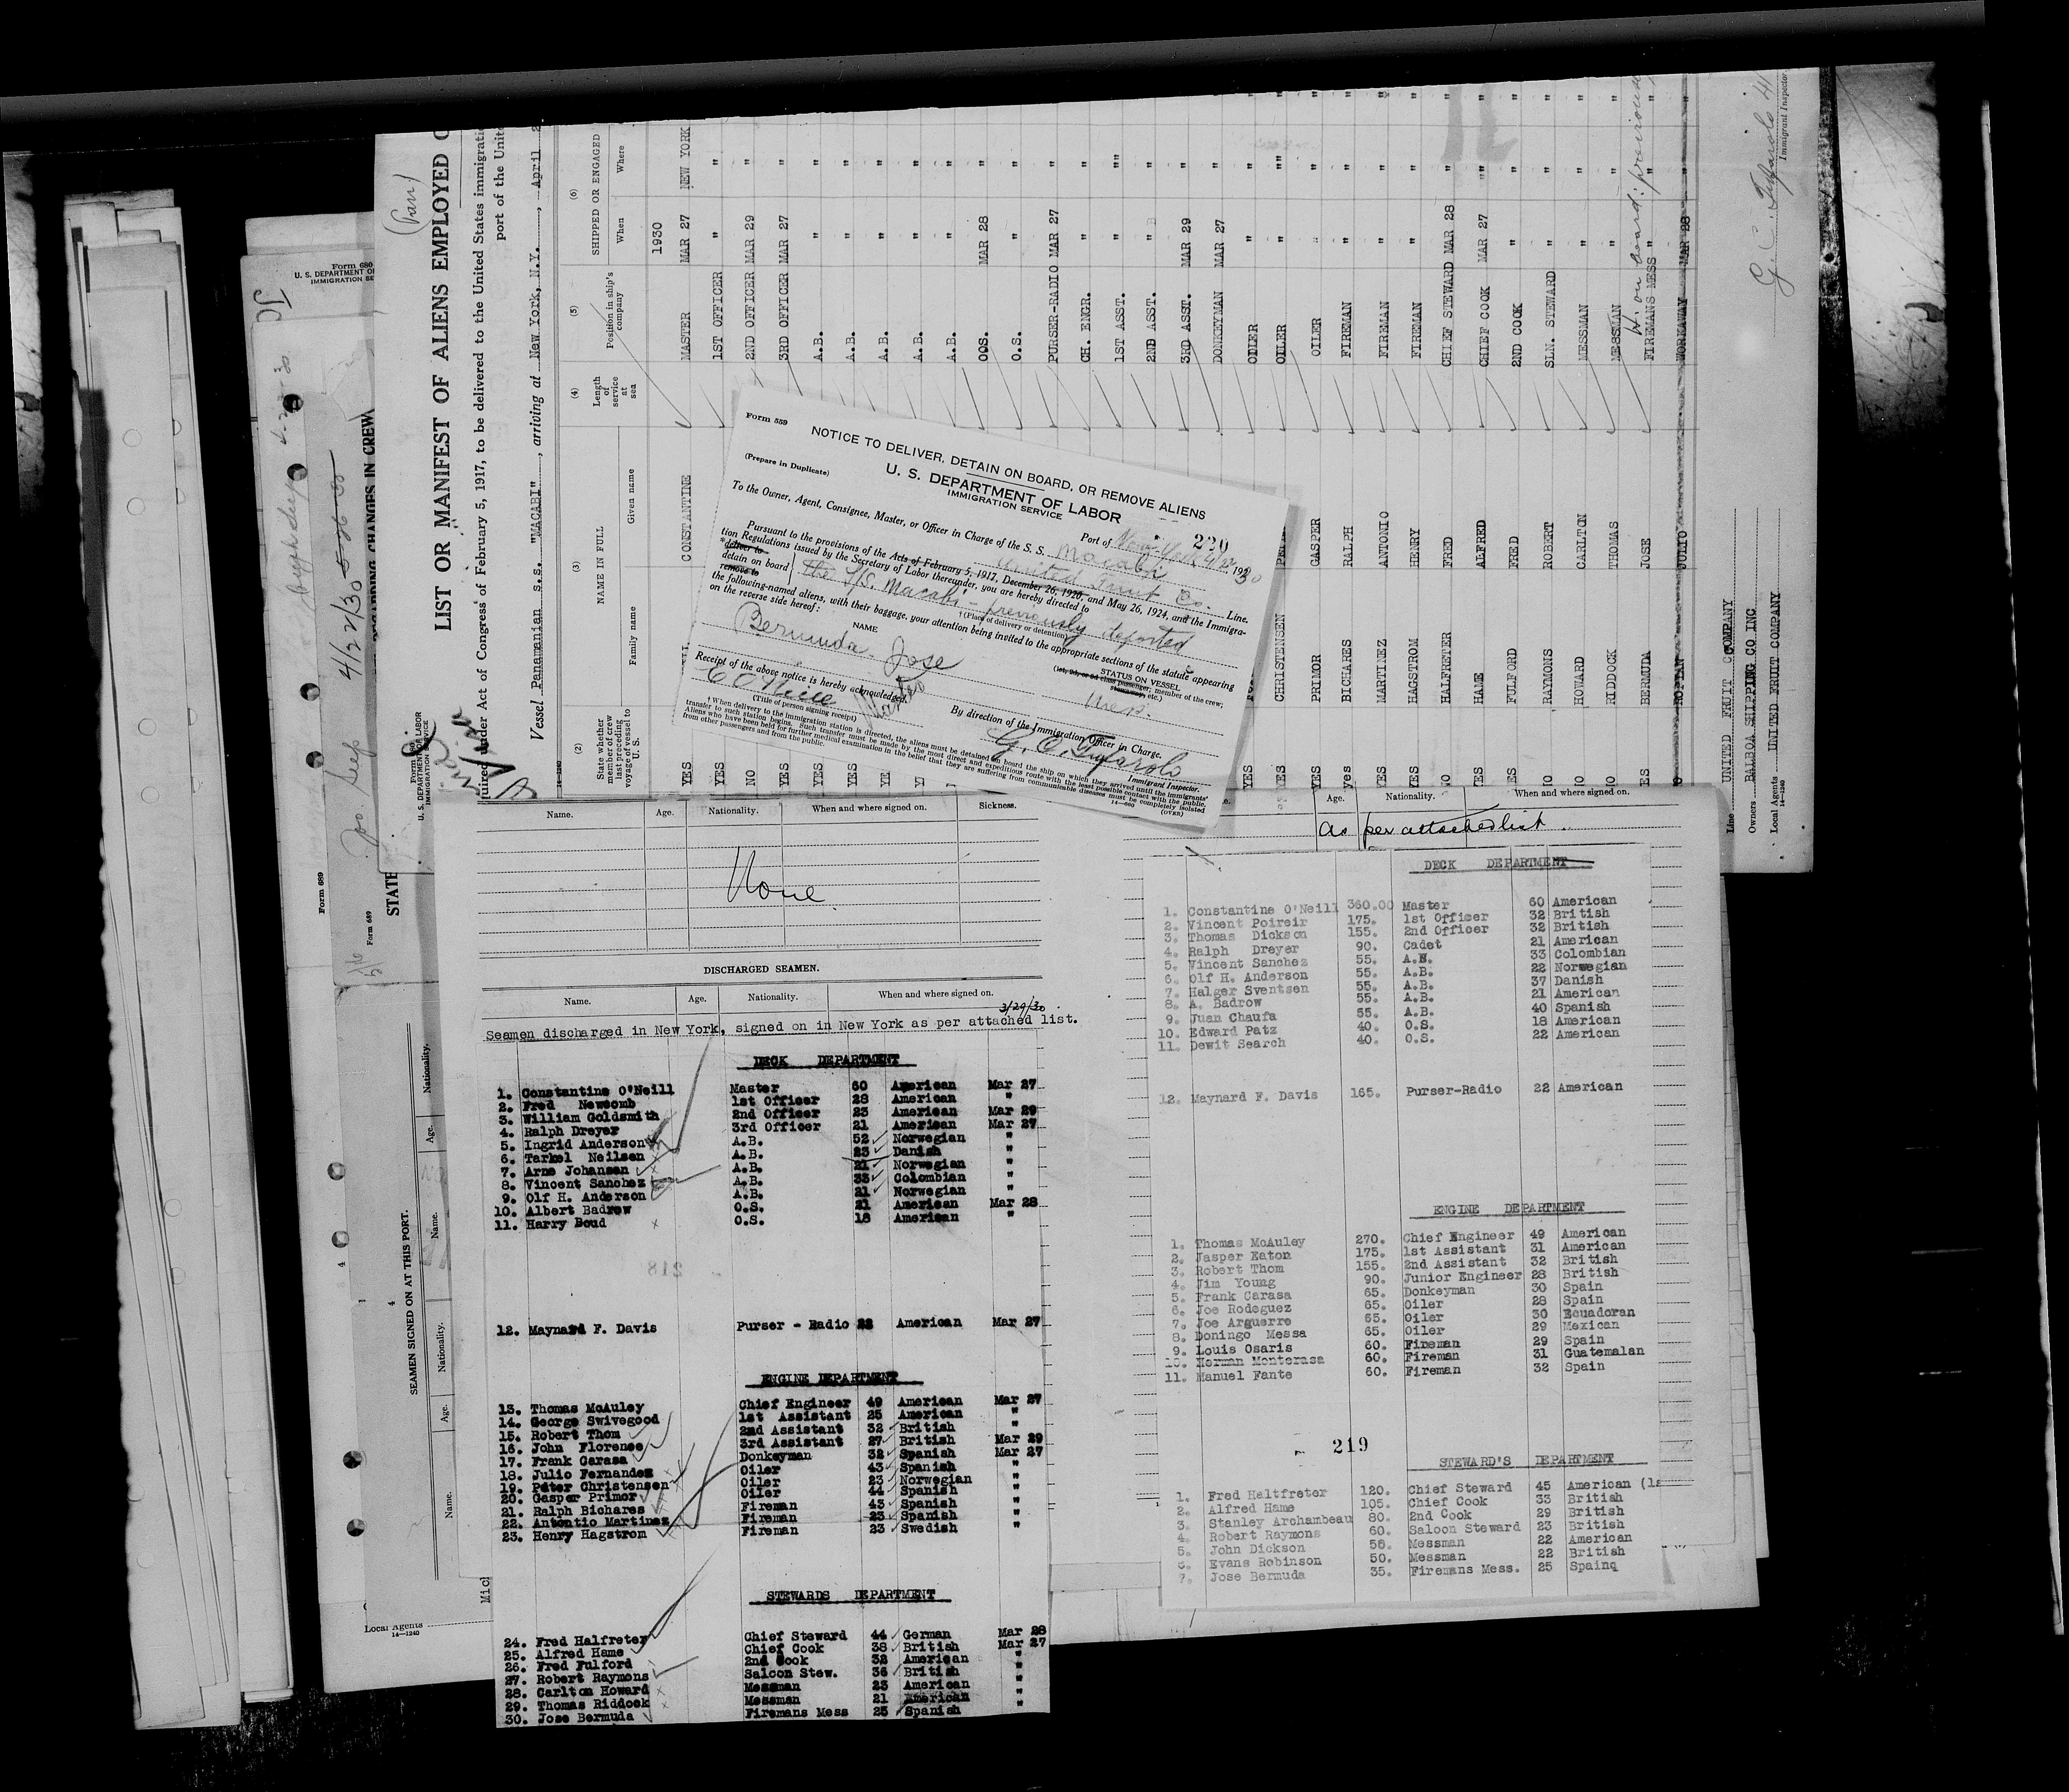 (Pan)
LIST OR MANIFEST OF ALIENS EMPLOYED O
under Act of Congress of February 5, 1917, to be delivered to the United States immigrati
port of the Unite
Vessel Panamanian s.s. "MACABI", arriving at New York, N.Y., April 2
(2) (3) (4) (5) (6)
State whether member of crew last preceding voyage of vessel to U. S.
NAME IN FULL
Family name Given name
Length of service at sea
Position in ship's company
SHIPPED OR ENGAGED
When Where
1930
YES CONSTANTINE MASTER MAR 27 NEW YORK
YES 1ST OFFICER " "
NO 2ND OFFICER MAR 29 "
YES 3RD OFFICER MAR 27 "
YES A.B. " "
YES A.B. " "
A.B. " "
A.B. " "
A.B. " "
OOS. MAR 28 "
O.S. " "
PURSER-RADIO MAR 27 "
CH. ENGR. " "
1ST ASST. " ""
2ND ASST. " "
3RD ASST. MAR 29 "
DONKEYMAN MAR 27 "
YES OILER " "
YES CHRISTENSEN OILER " ""
YES PRIMOR GASPER OILER " "
yes BICHARES RALPH FIREMAN " "
YES MARTINEZ ANTONIO FIREMAN " "
YES HAGSTROM HENRY FIREMAN " "
NO HALFRETER FRED CHIEF STEWARD MAR 28 "
YES HAME ALFRED CHIEF COOK MAR 27 ""
FULFORD FRED 2ND COOK " "
RAYMONS ROBERT SLN. STEWARD " "
HOWARD CARLTON MESSMAN " "
RIDDOCK THOMAS MESSMAN " "
BERMUDA JOSE FIREMANS MESS " "
JULIO WORKAWAY MAR 28 "
Line UNITED FRUIT COMPANY
Owners BALBOA SHIPPING CO INC
Local Agents UNITED FRUIT COMPANY
14—1240
Immigrant Inspector
Form 689
U. S. DEPARTMENT OF LABOR
IMMIGRATION SERVICE
REGARDING CHANGES IN CREW
4/22/30
Form 689
STATE
SEAMEN SIGNED ON AT THIS PORT.
Name. Age. Nationality.
Local Agents
14—1240
Form 559
NOTICE TO DELIVER, DETAIN ON BOARD, OR REMOVE ALIENS
(Prepare in Duplicate)
U. S. DEPARTMENT OF LABOR
IMMIGRATION SERVICE
220
Port of New York,
To the Owner, Agent, Consignee, Master, or Officer in Charge of the S. S. Macabi
United Fruit Co. Line.
Pursuant to the provisions of the Acts of February 5, 1917, December 26, 1920, and May 26, 1924, and the Immigra-
tion Regulations issued by the Secretary of Labor thereunder, you are hereby directed to
deliver to
detain on board the S/S. Macabi - previously deported
remove to
†(Place of delivery or detention)
the following-named aliens, with their baggage, your attention being invited to the appropriate sections of the statute appearing
on the reverse side hereof:
NAME STATUS ON VESSEL
(1st, 2d, or 3d class passenger, member of the crew, stowaway, etc.)
Bermuda, Jose
Receipt of the above notice is hereby acknowledged.
C O'Neill Master
(Title of person signing receipt)
By direction of the Immigration Officer in Charge.
Immigrant Inspector.
† When delivery to the immigration station is directed, the aliens must be detained on board the ship on which they arrived until the immigrants'
transfer to such station begins. Such transfer must be made by the most direct and expeditious route with the least possible contact with the public.
Aliens who have been held for further medical examination in the belief that they are suffering from communicable diseases must be completely isolated
from other passengers and from the public.
14—660 (OVER)
Name. Age. Nationality. When and where signed on. Sickness.
None
DISCHARGED SEAMEN.
Name. Age. Nationality. When and where signed on.
3/29/30
Seamen discharged in New York, signed on in New York as per attached list.
DECK DEPARTMENT
1. Constantine O'Neill Master 60 American Mar 27
2. Fred Newcomb 1st Officer 28 American "
3. William Goldsmith 2nd Officer 23 American Mar 29
4. Ralph Dreyer 3rd Officer 21 American Mar 27
5. Ingrid Anderson A.B. 52 Norwegian "
6. Tarkel Neilsen A.B. 23 Danish "
7. Arne Johansen A.B. 21 Norwegian "
8. Vincent Sanchez A.B. 33 Colombian "
9. Olf H. Anderson A.B. 21 Norwegian "
10. Albert Badrow O.S. 21 American Mar 28
11. Harry Boud O.S. 18 American "
218
12. Maynard F. Davis Purser - Radio 22 American Mar 27
ENGINE DEPARTMENT
13. Thomas McAuley Chief Engineer 49 American Mar 27
14. George Swivegood 1st Assistant 25 American "
15. Robert Thom 2nd Assistant 32 British "
16. John Florence 3rd Assistant 27 British Mar 29
17. Frank Carasa Donkeyman 32 Spanish Mar 27
18. Julio Fernandez Oiler 43 Spanish "
19. Peter Christensen Oiler 23 Norwegian "
20. Gasper Primor Oiler 44 Spanish "
21. Ralph Bichares Fireman 43 Spanish "
22. Antontio Martinez Fireman 23 Spanish "
23. Henry Hagstrom Fireman 23 Swedish "
STEWARDS DEPARTMENT
24. Fred Halfreter Chief Steward 44 German Mar 28
25. Alfred Hame Chief Cook 38 British Mar 27
26. Fred Fulford 2nd Cook 32 American "
27. Robert Raymons Saloon Stew. 36 British "
28. Carlton Howard Messman 23 American "
29. Thomas Riddock Messman 21 American "
30. Jose Bermuda Firemans Mess 25 Spanish "
Age. Nationality. When and where signed on.
as per attached list.
DECK DEPARTMENT
1. Constantine O'Neill 360.00 Master 60 American
2. Vincent Poireir 175. 1st Officer 32 British
3. Thomas Dickson 155. 2nd Officer 32 British
4. Ralph Dreyer 90. Cadet 21 American
5. Vincent Sanchez 55. A.B. 33 Colombian
6. Olf H. Anderson 55. A.B. 22 Norwegian
7. Halger Sventsen 55. A.B. 37 Danish
8. A. Badrow 55. A.B. 21 American
9. Juan Chaufa 55. A.B. 40 Spanish
10. Edward Patz 40. O.S. 18 American
11. Dewit Search 40. O.S. 22 American
12. Maynard F. Davis 165. Purser-Radio 22 American
ENGINE DEPARTMENT
1. Thomas McAuley 270. Chief Engineer 49 American
2. Jasper Eaton 175. 1st Assistant 31 American
3. Robert Thom 155. 2nd Assistant 32 British
4. Jim Young 90. Junior Engineer 28 British
5. Frank Carasa 65. Donkeyman 30 Spain
6. Joe Rodeguez 65. Oiler 28 Spain
7. Joe Arguerre 65. Oiler 30 Ecuadoran
8. Doningo Messa 65. Oiler 29 Mexican
9. Louis Osaris 60. Fireman 29 Spain
10. Herman Monterasa 60. Fireman 31 Guatemalan
11. Manuel Fante 60. Fireman 32 Spain
219
STEWARD'S DEPARTMENT
1. Fred Haltfreter 120. Chief Steward 45 American (1s
2. Alfred Hame 105. Chief Cook 33 British
3. Stanley Archambeau 80. 2nd Cook 29 British
4. Robert Raymons 60. Saloon Steward 23 British
5. John Dickson 50. Messman 22 American
6. Evans Robinson 50. Messman 22 British
7. Jose Bermuda 35. Firemans Mess. 25 Spainq